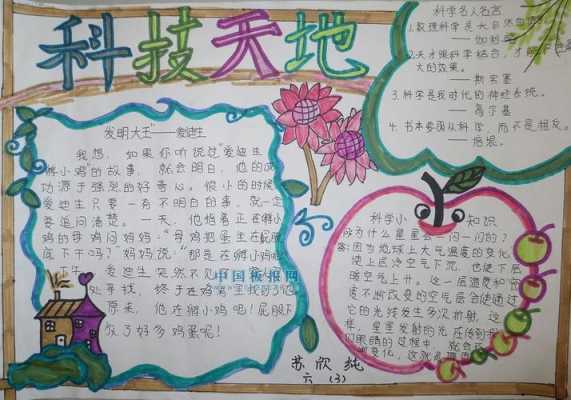 科技天地
发明大王"——爱迪生
我想,如果你听说过"爱迪生
孵小鸡"的故事,就会明白,他的成
功源于强烈的好奇心。很小的时候
爱迪生只要一有不明白的事,就一定
要追问清楚。一天,他指着正在孵小
鸡的母鸡问妈妈:"母鸡把蛋坐在屁股
底下干吗?"妈妈说:"那是在孵小鸡呢
爱迪生突然不见了
处寻找,终于在鸡窝里找到了他
原来,他在孵小鸡呢!屁股下
放了好多鸡蛋呢!
中国板报网
科学名人名言
1.数理科学是大自然
——伽利略
2.天才跟科学结合,才
大的效果。
——斯宾塞
3.科学是我时代的神经系统。
——高尔基
4.书本要围从科学,而不是相反。
——培根。
科学小知识
为什么星星会一闪一闪的?
答:因为地球上大气温度的变化,
使上层冷空气下沉,也使下层
暖空气上升。这一层温度和密
度不断改变的空气层会使通过
它的光线发生多次折射,这
样,星星发射的光在传到
们眼睛的过程中,就会
变化,这就
苏欣纯
六(3)